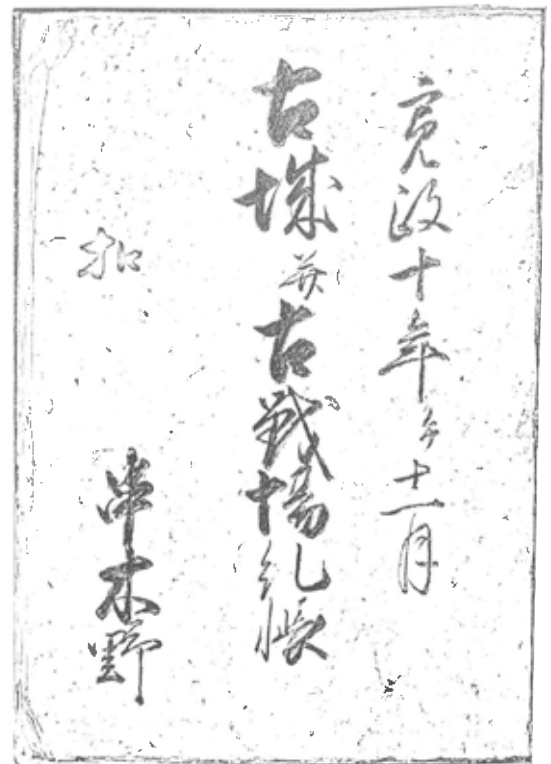 寛政十年午十一月
古城并古戦場糺帳
扣 串木野